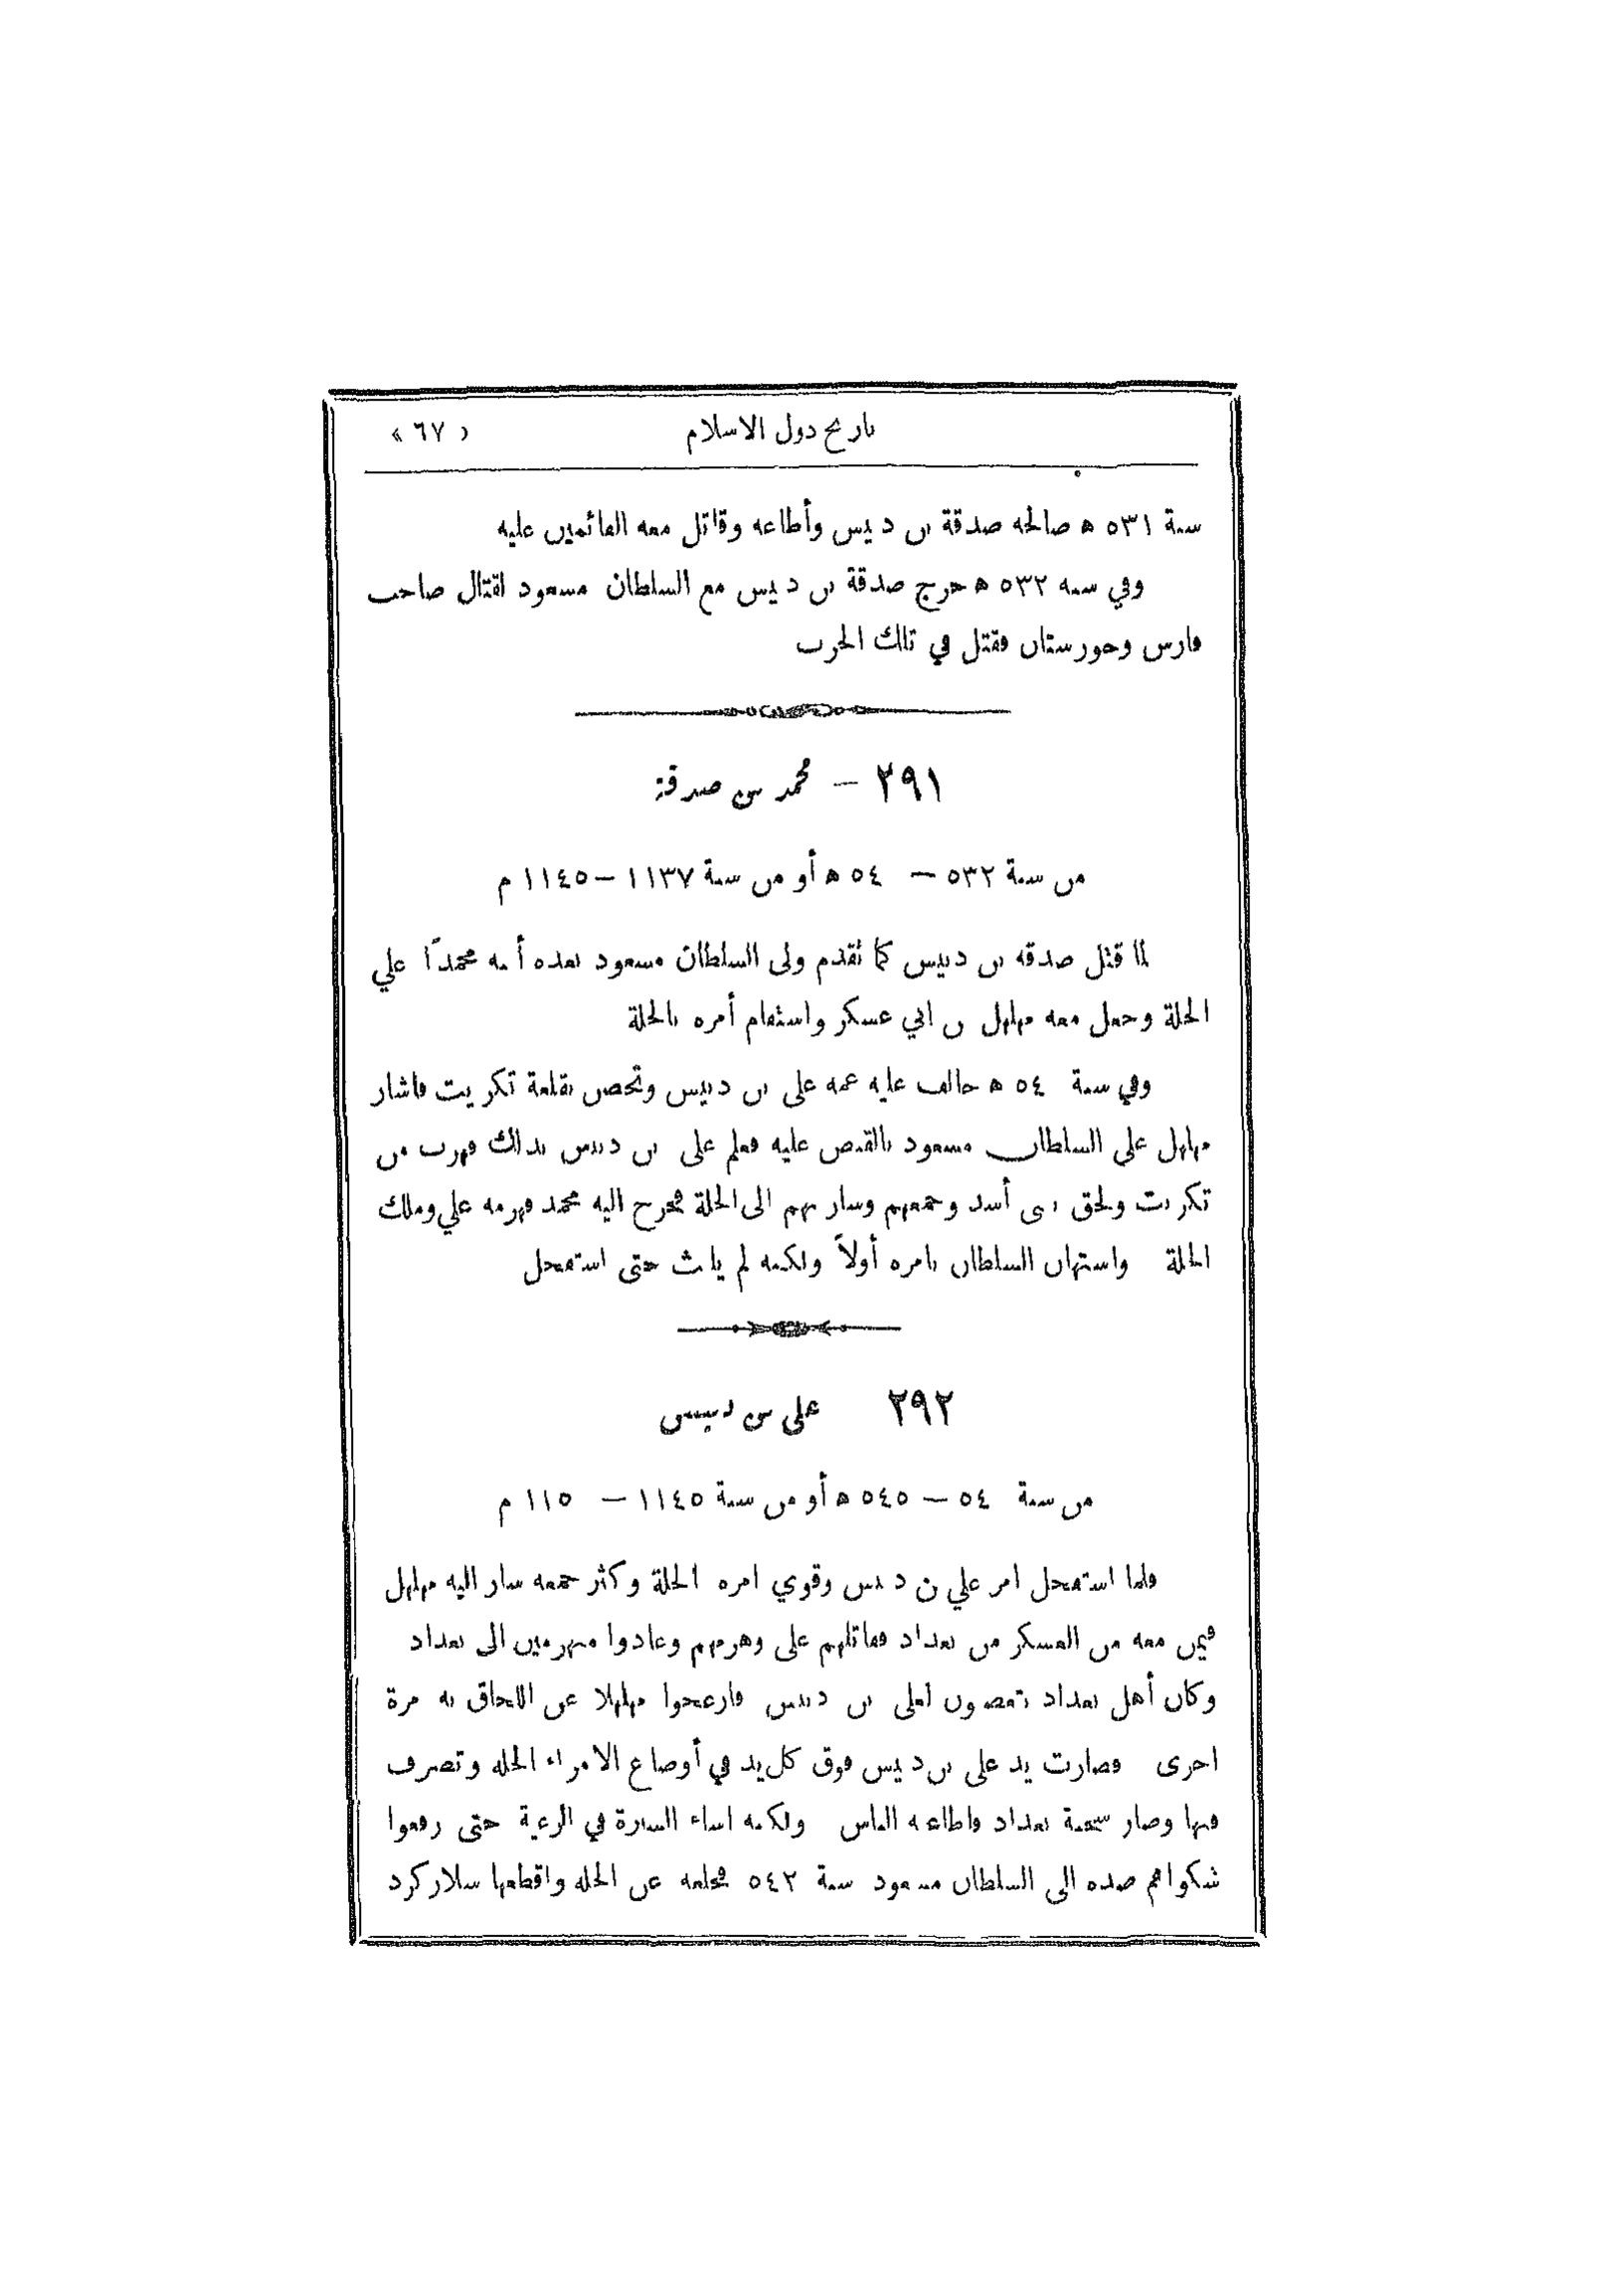 تاريخ دول الاسلام
« ٦٧ »
سنة ٥٣١ ه صالحه صدقة بن دبيس وأطاعه وقاتل معه القائمين عليه
وفي سنه ٥٣٢ ه خرج صدقة بن دبيس مع السلطان مسعود لقتال صاحب
فارس وخورستان فقتل في تلك الحرب
٢٩١ – محمد بن صدقة
من سنة ٥٣٢ – ٥٤ ه أو من سنة ١١٣٧ – ١١٤٥ م
لما قتل صدقه بن دبيس كما تقدم ولى السلطان مسعود بعده أبنه محمدًا علي
الحلة وجعل معه مهلهل بن ابي عسكر واستقام أمره بالحلة
وفي سنة ٥٤ ه خالف عليه عمه على بن دبيس وتحصن بقلعة تكريت فاشار
مهلهل على السلطان مسعود بالقبض عليه فعلم على بن دبيس بذلك فهرب من
تكريت ولحق ببنى أسد وجمعهم وسار بهم الى الحلة فخرج اليه محمد فهزمه علي وملك
الحلة واستهان السلطان بامره أولاً ولكنه لم يلبث حتى استفحل
٢٩٢ على بن دبيس
من سنة ٥٤ – ٥٤٥ ه أو من سنة ١١٤٥ – ١١٥ م
فلما استفحل امر علي بن دبيس وقوي امره الحلة وكثر جمعه سار اليه مهلهل
فيمن معه من العسكر من بغداد فقاتلهم على وهزمهم وعادوا منهزمين الى بغداد
وكان أهل بغداد يتعصبون لعلى بن دبيس فازعجوا مهلهلا عن اللحاق به مرة
اخرى فصارت يد على بن دبيس فوق كل يد في أوضاع الامراء الحله وتصرف
فيها وصار شحنة بغداد فاطاعه الناس ولكنه اساء السيرة في الرعية حتى رفعوا
شكواهم ضده الى السلطان مسعود سنة ٥٤٢ فخلعه عن الحله واقطعها سلاركرد